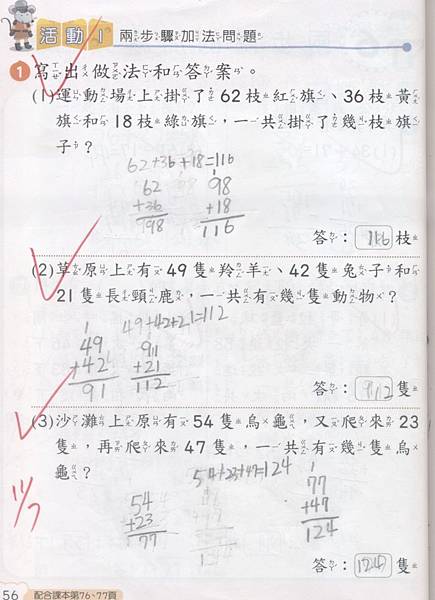 活動1 兩步驟加法問題
1 寫出做法和答案。
(1)運動場上掛了62枝紅旗、36枝黃
旗和18枝綠旗，一共掛了幾枝旗
子？
62+36+18=116
62
+36
98
98
+18
116
答：116枝
(2)草原上有49隻羚羊、42隻兔子和
21隻長頸鹿，一共有幾隻動物？
49+42+21=112
1
49
+42
91
91
+21
112
答：112隻
(3)沙灘上原有54隻烏龜，又爬來23
隻，再爬來47隻，一共有幾隻烏
龜？
54+23+47=124
54
+23
77
1
77
+47
124
答：124隻
56 配合課本第76、77頁